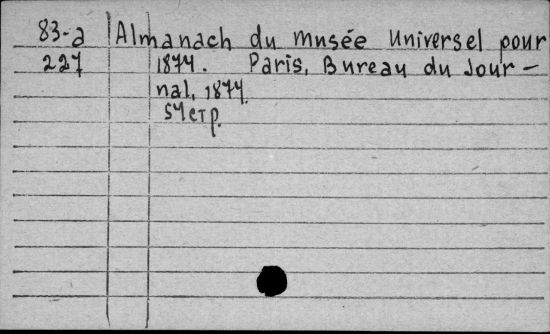 83-a Almanach du musée universel pour
227 1874. Paris, Bureau du Jour-
nal, 1874.
54 стр.